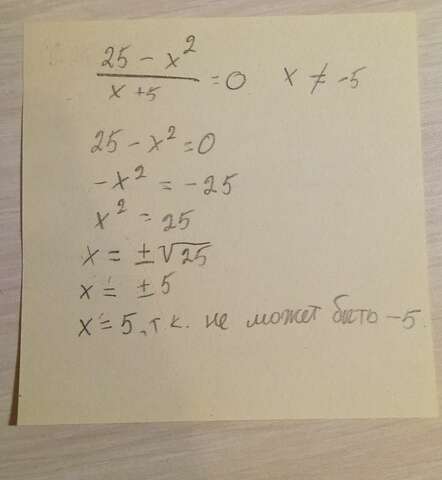 25 - x² / x + 5 = 0 x ≠ -5
25 - x² = 0
-x² = -25
x² = 25
x = ±√25
x = ±5
x = 5, т.к. не может быть -5.